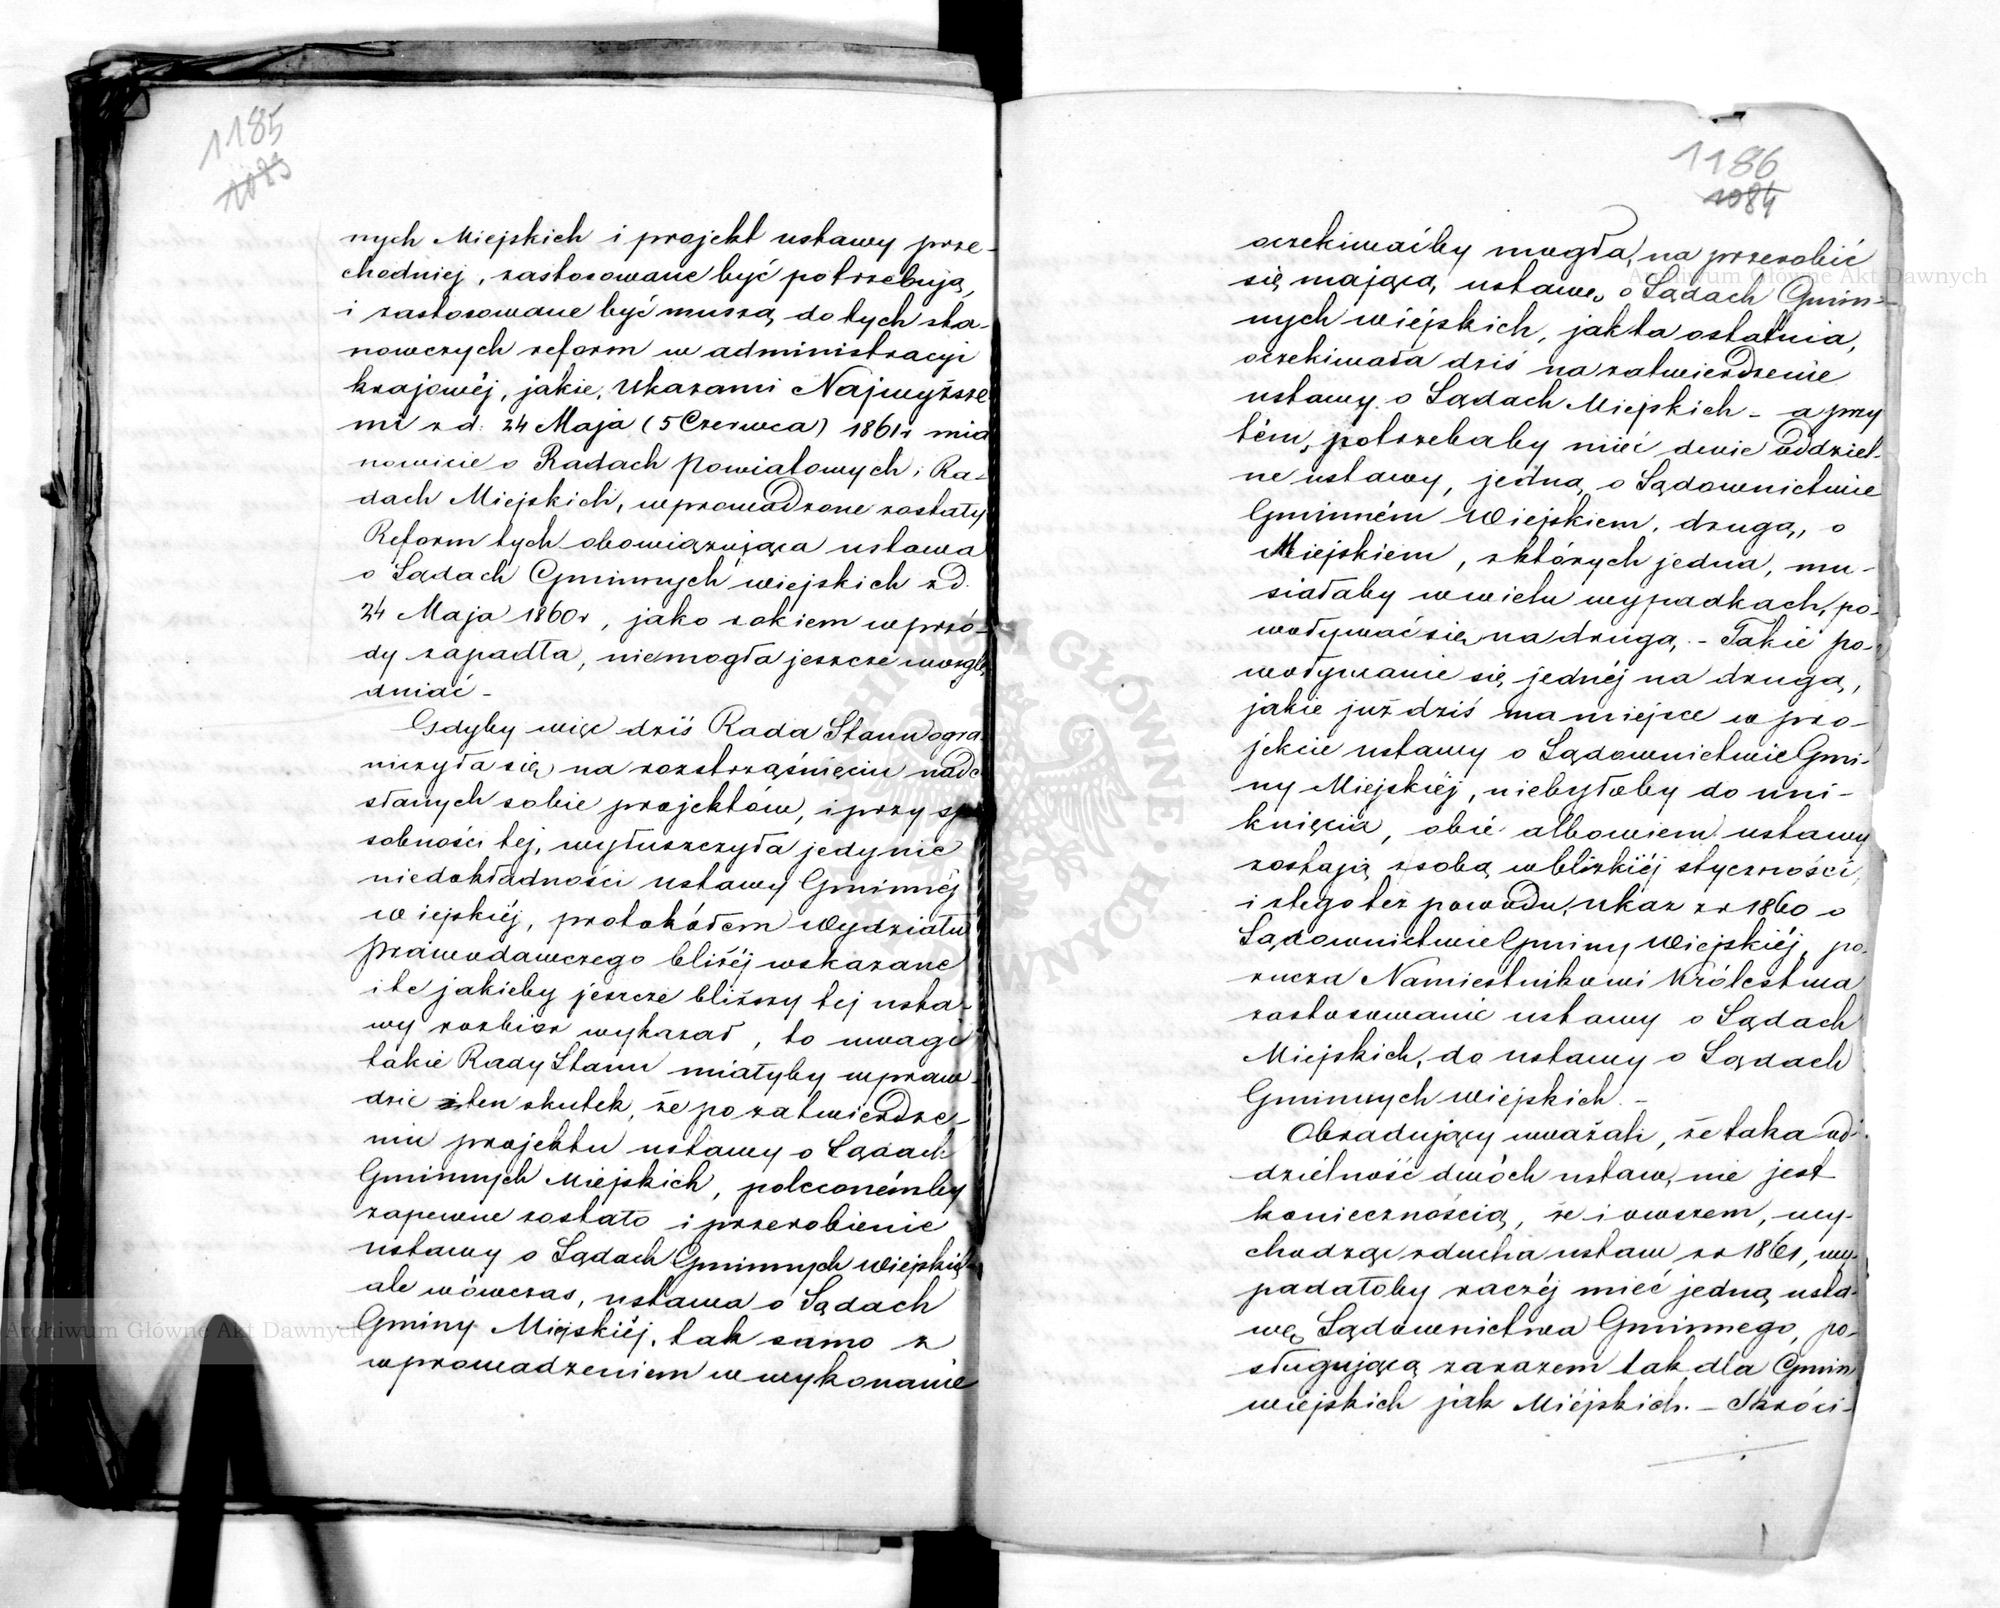 1185
1083
nych Miejskich i projekt ustawy prze-
chodniej, zastosowane być potrzebują,
i zastosowane być muszą do tych sta-
nowczych reform w administracyi
krajowéj, jakie, Ukazami Najwyższe
mi z d. 24 Maja (5 Czerwca) 1861 r mia
nowicie o Radach Powiatowych i Ra-
dach Miejskich, wprowadzone zostały
Reform tych obowiązująca ustawa
o Sądach Gminnych wiejskich z d.
24 Maja 1860 r, jako rokiem wprzó-
dy zapadła, niemogła jeszcze uwzglę
dniać -
Gdyby więc dziś Rada Stanu ogra
niczyła się na rozstrząśnięciu nade
słanych sobie projektów, i przy spo
sobności tej, wyłuszczyła jedynie
niedokładności ustawy Gminnéj
wiejskiéj, protokółem Wydziału
Prawodawczego bliżéj wskazane
i te jakieby jeszcze bliższy tej usta-
wy rozbiór wykazał, to uwagi
takie Rady Stanu miałyby wpraw-
dzie ten skutek, że po zatwierdze-
niu projektu ustawy o Sądach
Gminnych Miejskich, poleconémby
zapewne zostało i przerobienie
ustawy o Sądach Gminnych Wiejskich
ale wówczas, ustawa o Sądach
Gminy Miejskiéj, tak samo z
wprowadzeniem w wykonanie
1186
1084
oczekiwaćby mogła, na przerobić
się mającą ustawę o Sądach Gmin-
nych wiejskich, jak ta ostatnia,
oczekiwała dziś na zatwierdzenie
ustawy o Sądach Miejskich - a przy
tém, potrzebaby mieć dwie oddziel-
ne ustawy, jedną o Sądownictwie
Gminném Wiejskiem, drugą, o
Miejskiem, z których jedna, mu-
siałaby w wielu wypadkach, po-
woływać się na drugą. - Takie po-
woływanie się jednéj na drugą,
jakie już dziś ma miejsce w pro-
jekcie ustawy o Sądownictwie Gmi-
ny Miejskiéj, niebyłoby do uni-
knięcia, obie albowiem ustawy
zostają z sobą w blizkiéj styczności,
i z tego też powodu, ukaz z r 1860 o
Sądownictwie Gminy Wiejskiéj, po-
rucza Namiestnikowi Królestwa
zastosowanie ustawy o Sądach
Miejskich, do ustawy o Sądach
Gminnych wiejskich. -
Obradujący uważali, że taka od-
dzielność dwóch ustaw, nie jest
koniecznością, że i owszem, wy-
chodząc z ducha ustaw z r 1861, wy-
padałoby raczéj mieć jedną usta-
wę Sądownictwa Gminnego, po-
sługującą zarazem tak dla Gmin
wiejskich jak Miejskich. - Skróci-
Archiwum Główne Akt Dawnych
Archiwum Główne Akt Dawnych